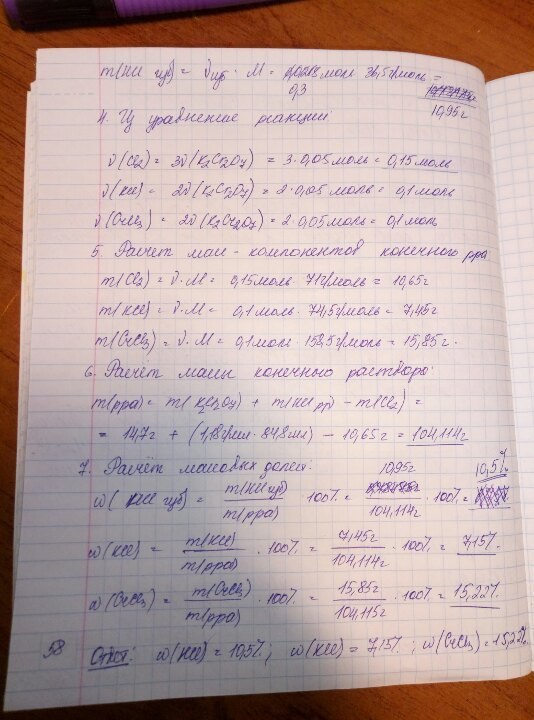 m(HCl изб) = ν изб · M = 0,3 моль · 36,5 г/моль =
10,95 г
4. Из уравнение реакции
ν(Cl2) = 3ν(K2Cr2O7) = 3·0,05 моль = 0,15 моль
ν(KCl) = 2ν(K2Cr2O7) = 2·0,05 моль = 0,1 моль
ν(CrCl3) = 2ν(K2Cr2O7) = 2·0,05 моль = 0,1 моль
5. Расчет масс - компонентов конечного рра
m(Cl2) = ν·M = 0,15 моль · 71 г/моль = 10,65 г
m(KCl) = ν·M = 0,1 моль · 74,5 г/моль = 7,45 г
m(CrCl3) = ν·M = 0,1 моль · 158,5 г/моль = 15,85 г.
6. Расчёт массы конечного раствора:
m(рра) = m(K2Cr2O7) + m(HCl рр) - m(Cl2) =
= 14,7 г + (1,18 г/мл · 84,8 мл) - 10,65 г = 104,114 г
7. Расчёт массовых долей:
ω(HCl изб) = m(HCl изб) / m(рра) · 100% = 10,95 г / 104,114 г · 100% = 10,5%
ω(KCl) = m(KCl) / m(рра) · 100% = 7,45 г / 104,114 г · 100% = 7,15%
ω(CrCl3) = m(CrCl3) / m(рра) · 100% = 15,85 г / 104,115 г · 100% = 15,22%
58 Ответ: ω(HCl) = 10,5%; ω(KCl) = 7,15%; ω(CrCl3) = 15,22%